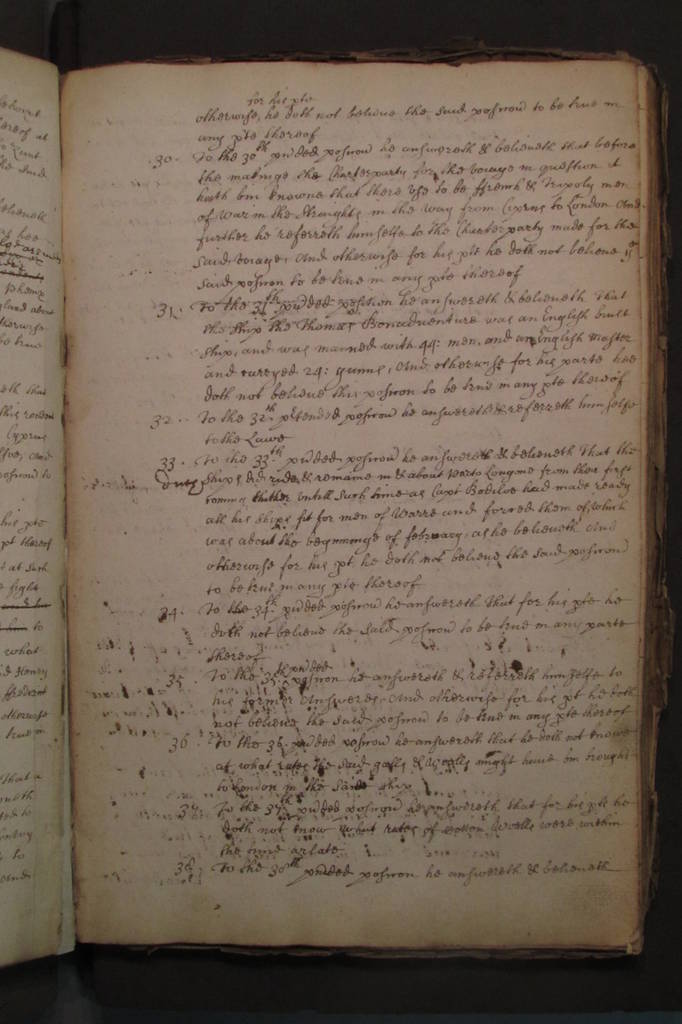 for his pte
otherwise, he doth not believe the said posicon to be true in
any pte thereof
30. To the 30th p'nded posicon he answereth & believeth that before
the makinge the Charterparty for the voiage in question it
hath bin knowne that there use to be ffrench & Tripoly men
of War in the Straights in the way from Cyprus to London And
further he referreth himselfe to the Charterparty made for the
said voiage, And otherwise for his pte he doth not believe ye
said posicon to be true in any pte thereof
31. To the 31th p'nded position he answereth & believeth That
the ship the Thomas Bonadventure was an English built
ship, and was manned with 44: men and an English Master
and carryed 24: gunns, And otherwise for his parte hee
doth not believe this posicon to be true in any pte thereof
32. To the 32th p'tended posicon he answereth & referreth himselfe
to the Lawe
33. To the 33th p'nded posicon he answereth & believeth That the
ships did ride & remaine in & about Porto Longone from their first
coming thither untill such time as Capt Badiloe had made ready
all his ships fit for men of Warre and forced them of, which
was about the beginninge of february as he believeth And
otherwise for his pt he doth not believe the said posicon
to be true in any pte thereof
34. To the 34th p'nded posicon he answereth That for his pte he
doth not believe the said posicon to be true in any parte
thereof
p'nded
35. To the 35th posicon he answereth & referreth himselfe to
his former Answeres, And otherwise for his pt he doth
not believe the said posicon to be true in any pte thereof
36. To the 36. p'nded posicon he answereth that he doth not knowe
at what rates the said galls & Wooll might have bin brought
to London in the said ship
37. To the 37th p'nded posicon he answereth that for his pte he
doth not know what rates of cotton Woolls were within
the time arlate
38. To the 38th p'nded posicon he answereth & believeth